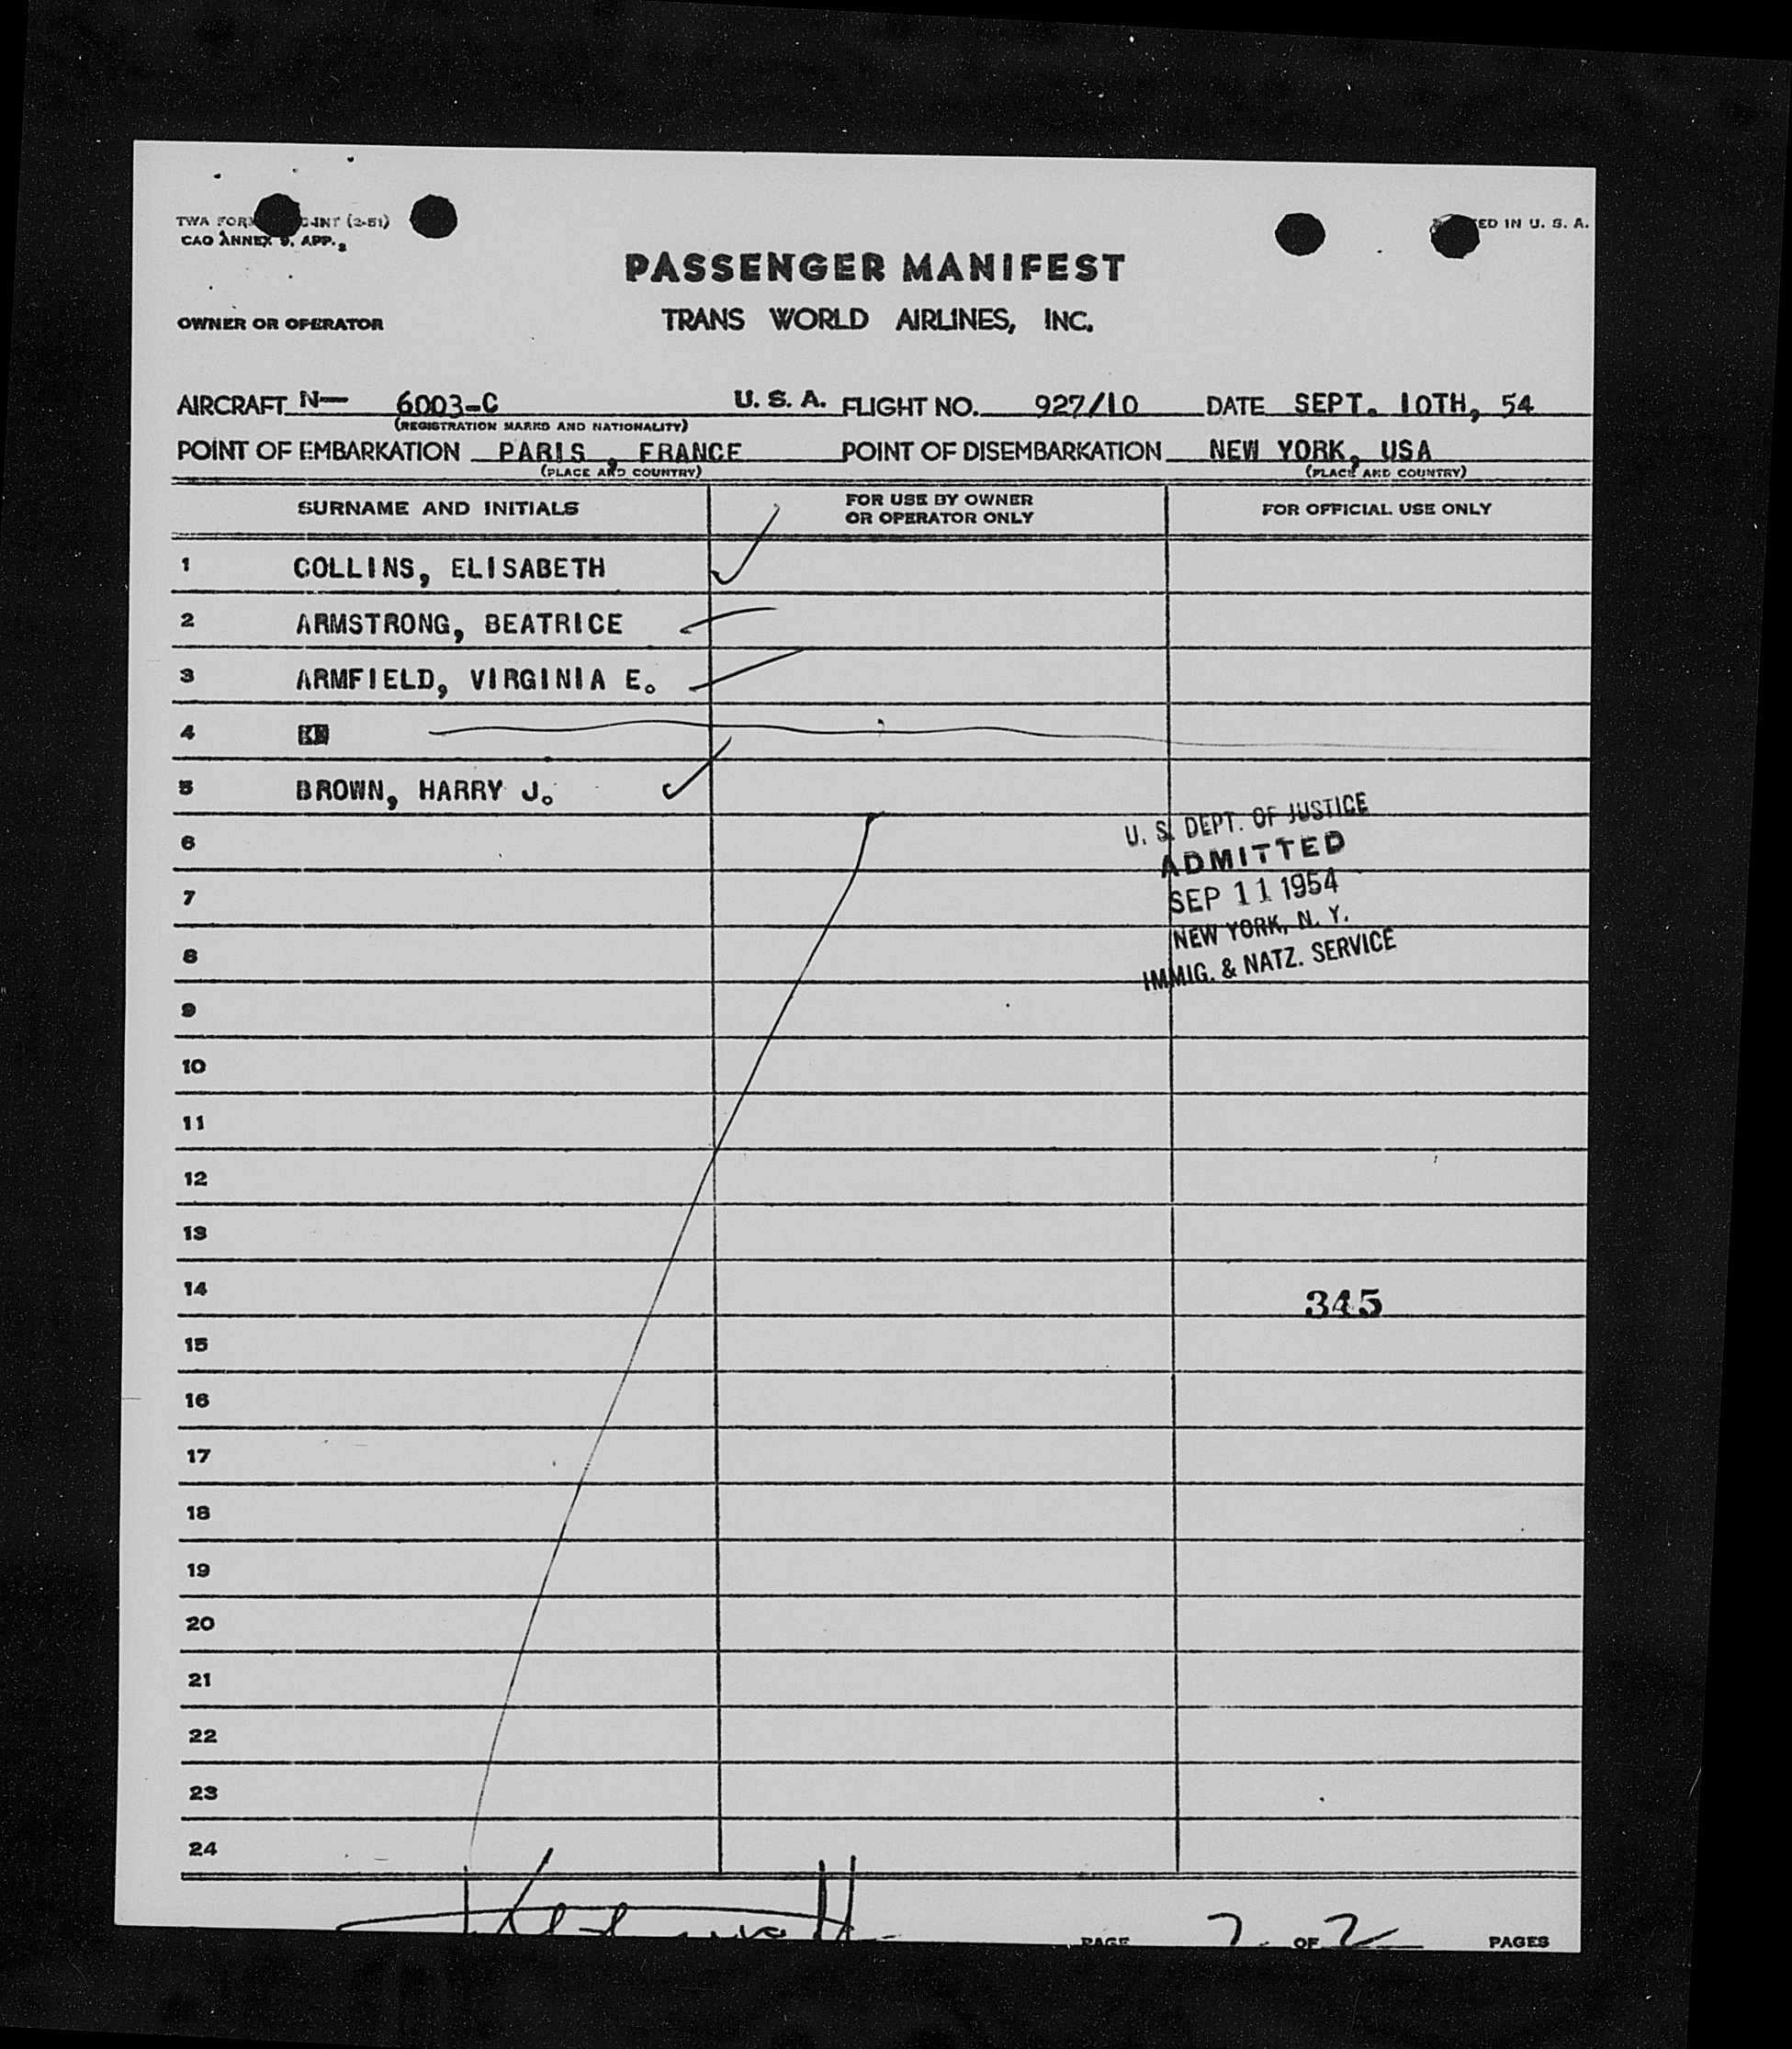 TWA FOR C-INT (2-51)
CAO ANNEX 9, APP. 2
ED IN U. S. A.
PASSENGER MANIFEST
OWNER OR OPERATOR TRANS WORLD AIRLINES, INC.
AIRCRAFT N— 6003-C U. S. A. FLIGHT NO. 927/10 DATE SEPT. 10TH, 54
(REGISTRATION MARKS AND NATIONALITY)
POINT OF EMBARKATION PARIS, FRANCE POINT OF DISEMBARKATION NEW YORK, USA
(PLACE AND COUNTRY) (PLACE AND COUNTRY)
SURNAME AND INITIALS FOR USE BY OWNER OR OPERATOR ONLY FOR OFFICIAL USE ONLY
1 COLLINS, ELISABETH
2 ARMSTRONG, BEATRICE
3 ARMFIELD, VIRGINIA E.
4
5 BROWN, HARRY J.
U. S. DEPT. OF JUSTICE
6
ADMITTED
7
SEP 11 1954
NEW YORK, N. Y.
8
IMMIG. & NATZ. SERVICE
9
10
11
12
13
14 345
15
16
17
18
19
20
21
22
23
24
PAGE 2 OF 2 PAGES